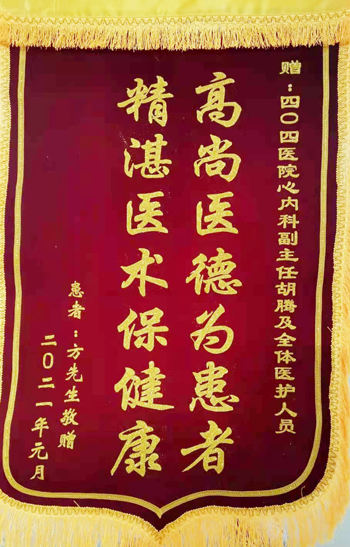 赠：四〇四医院心内科副主任胡腾及全体医护人员
高尚医德为患者
精湛医术保健康
患者：方先生敬赠
二〇二一年元月